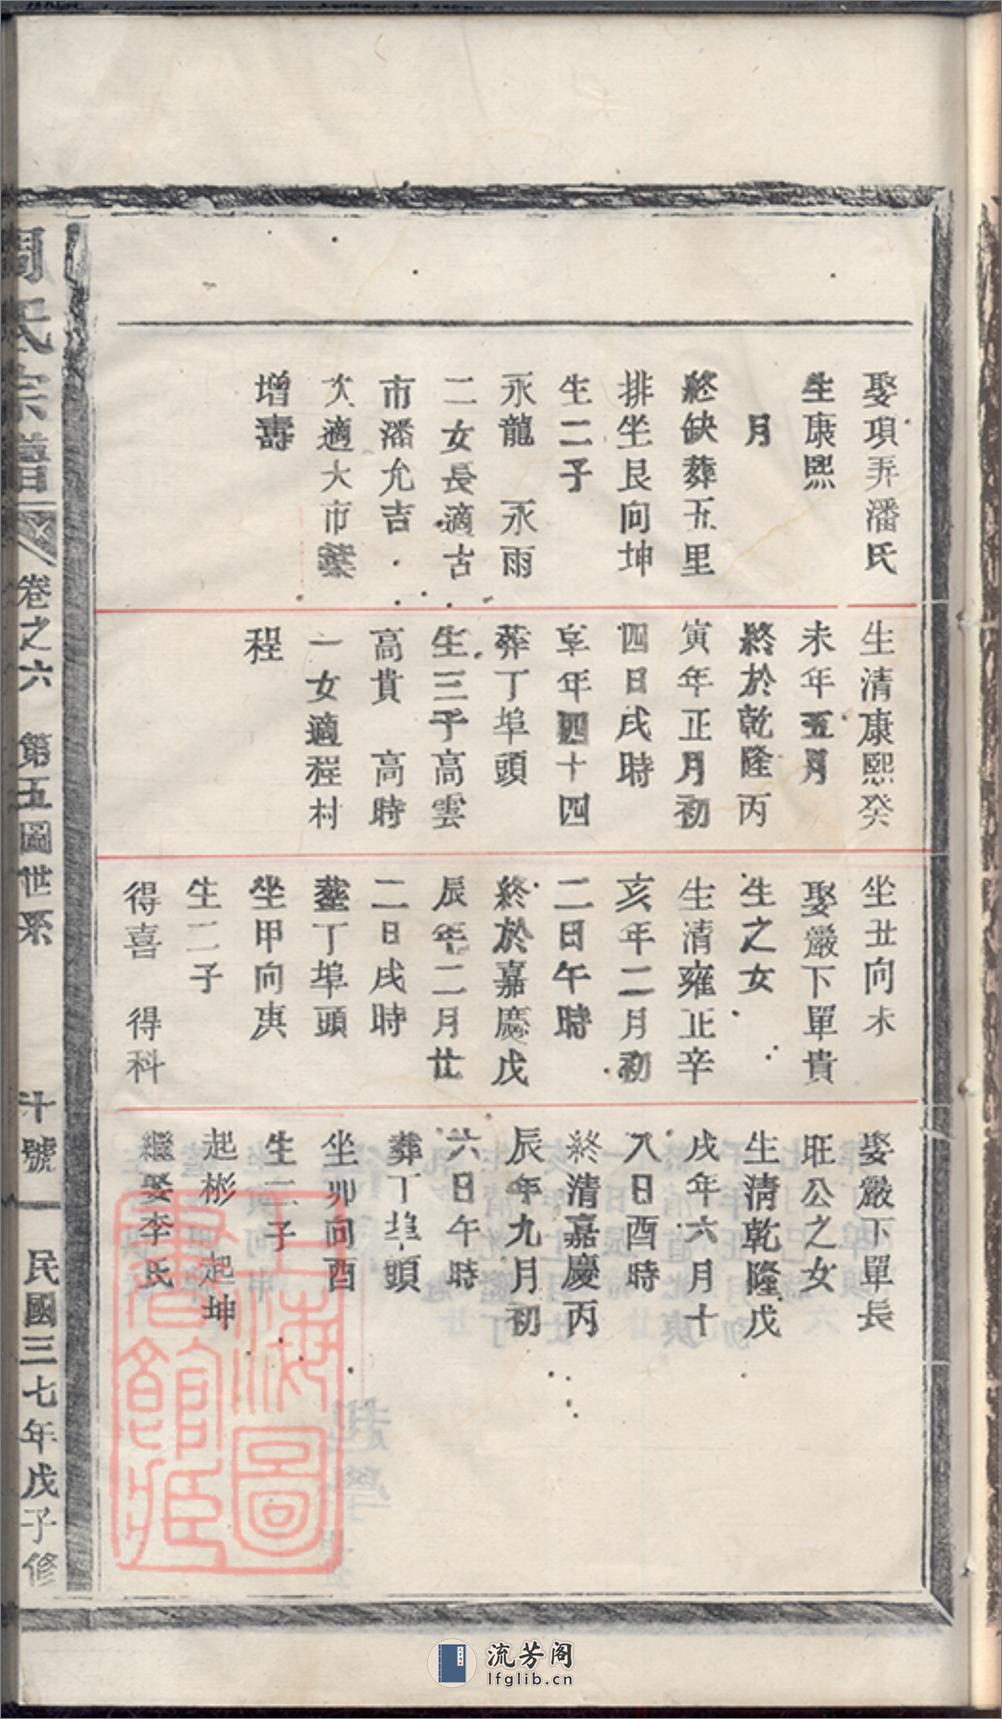 娶項弄潘氏
生康熙
月
終缺葬五里
排坐艮向坤
生二子
永龍 永雨
二女長適古
市潘允吉
次適大市葉
增壽
生清康熙癸
未年五月
終於乾隆丙
寅年正月初
四日戌時
享年四十四
葬丁埠頭
生三子高雲
高貴 高時
一女適程村
程
坐丑向未
娶嚴下單貴
生之女
生清雍正辛
亥年二月初
二日午時
終於嘉慶戊
辰年二月廿
二日戌時
葬丁埠頭
坐甲向庚
生二子
得喜 得科
娶嚴下單長
旺公之女
生清乾隆戊
戌年六月十
八日酉時
終清嘉慶丙
辰年九月初
六日午時
葬丁埠頭
坐卯向酉
生二子
起彬 起坤
繼娶李氏
周氏宗譜 卷之六 第五圖世系 十號 民國三七年戊子修
上海圖書館藏
流芳阁
lfglib.cn